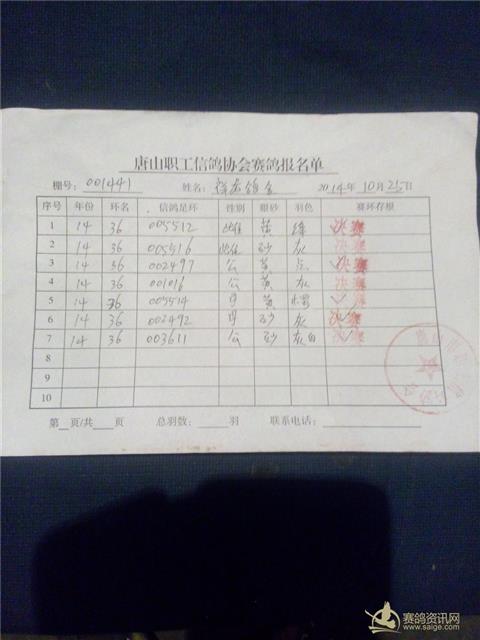 唐山职工信鸽协会赛鸽报名单
棚号: 001441 姓名: 2014年10月25日
序号 年份 环名 信鸽足环 性别 眼砂 羽色 赛环存根
1 14 36 005512 雌 黄 绛 决赛
2 14 36 005516 雌 砂 灰 决赛
3 14 36 002497 公 黄 点 决赛
4 14 36 001016 公 黄 灰 决赛
5 14 36 005514 黄 赛
6 14 36 002492 砂 灰 决赛
7 14 36 003611 公 砂 灰白 决赛
8
9
10
第 页/共 页 总羽数: 羽 联系电话:
赛鸽资讯网
www.saige.com